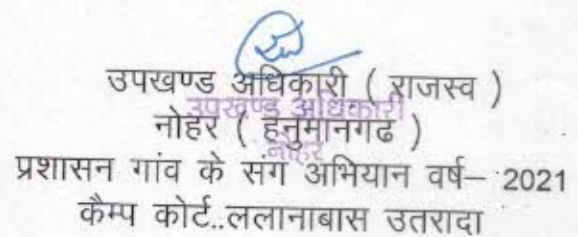 उपखण्ड अधिकारी ( राजस्व )
उपखण्ड अधिकारी
नोहर ( हनुमानगढ )
नोहर
प्रशासन गांव के संग अभियान वर्ष– 2021
कैम्प कोर्ट..ललानाबास उतरादा